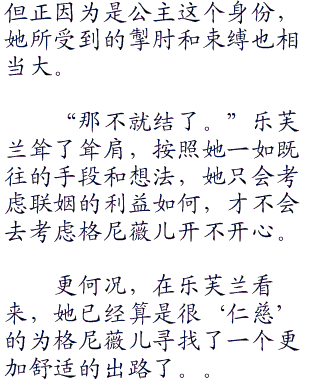 但正因为是公主这个身份，
她所受到的掣肘和束缚也相
当大。
“那不就结了。”乐芙
兰耸了耸肩，按照她一如既
往的手段和想法，她只会考
虑联姻的利益如何，才不会
去考虑格尼薇儿开不开心。
更何况，在乐芙兰看
来，她已经算是很‘仁慈’
的为格尼薇儿寻找了一个更
加舒适的出路了。。